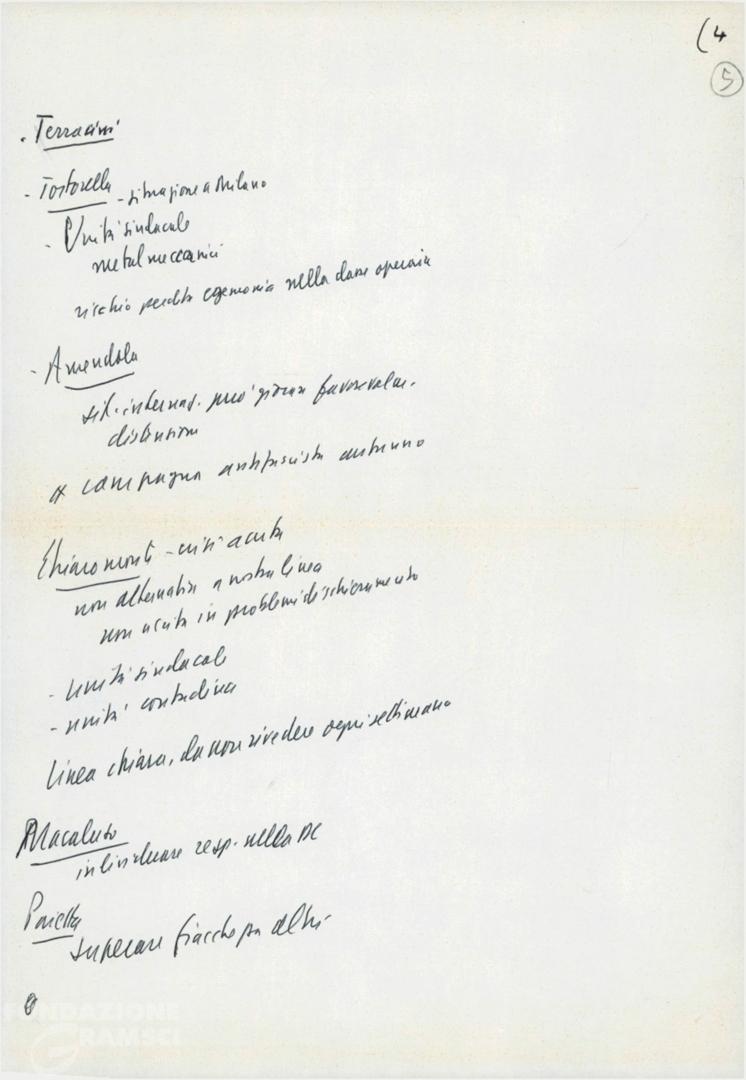 (4
5
. Terracini
- Tortorella - situazione a Milano
- Unità sindacale
metalmeccanici
rischio perdita egemonia nella classe operaia
- Amendola
sit. internaz. può giocare favorevolm.
distensione
x campagna antifascista autunno
Chiaromonte - crisi acuta
non alternativa a nostra linea
non acuta in problemi di schieramento
- unità sindacale
- unità contadina
linea chiara, da non rivedere ogni settimana
Macaluso
individuare resp. nella DC
Pajetta
superare fiacche
FONDAZIONE
GRAMSCI